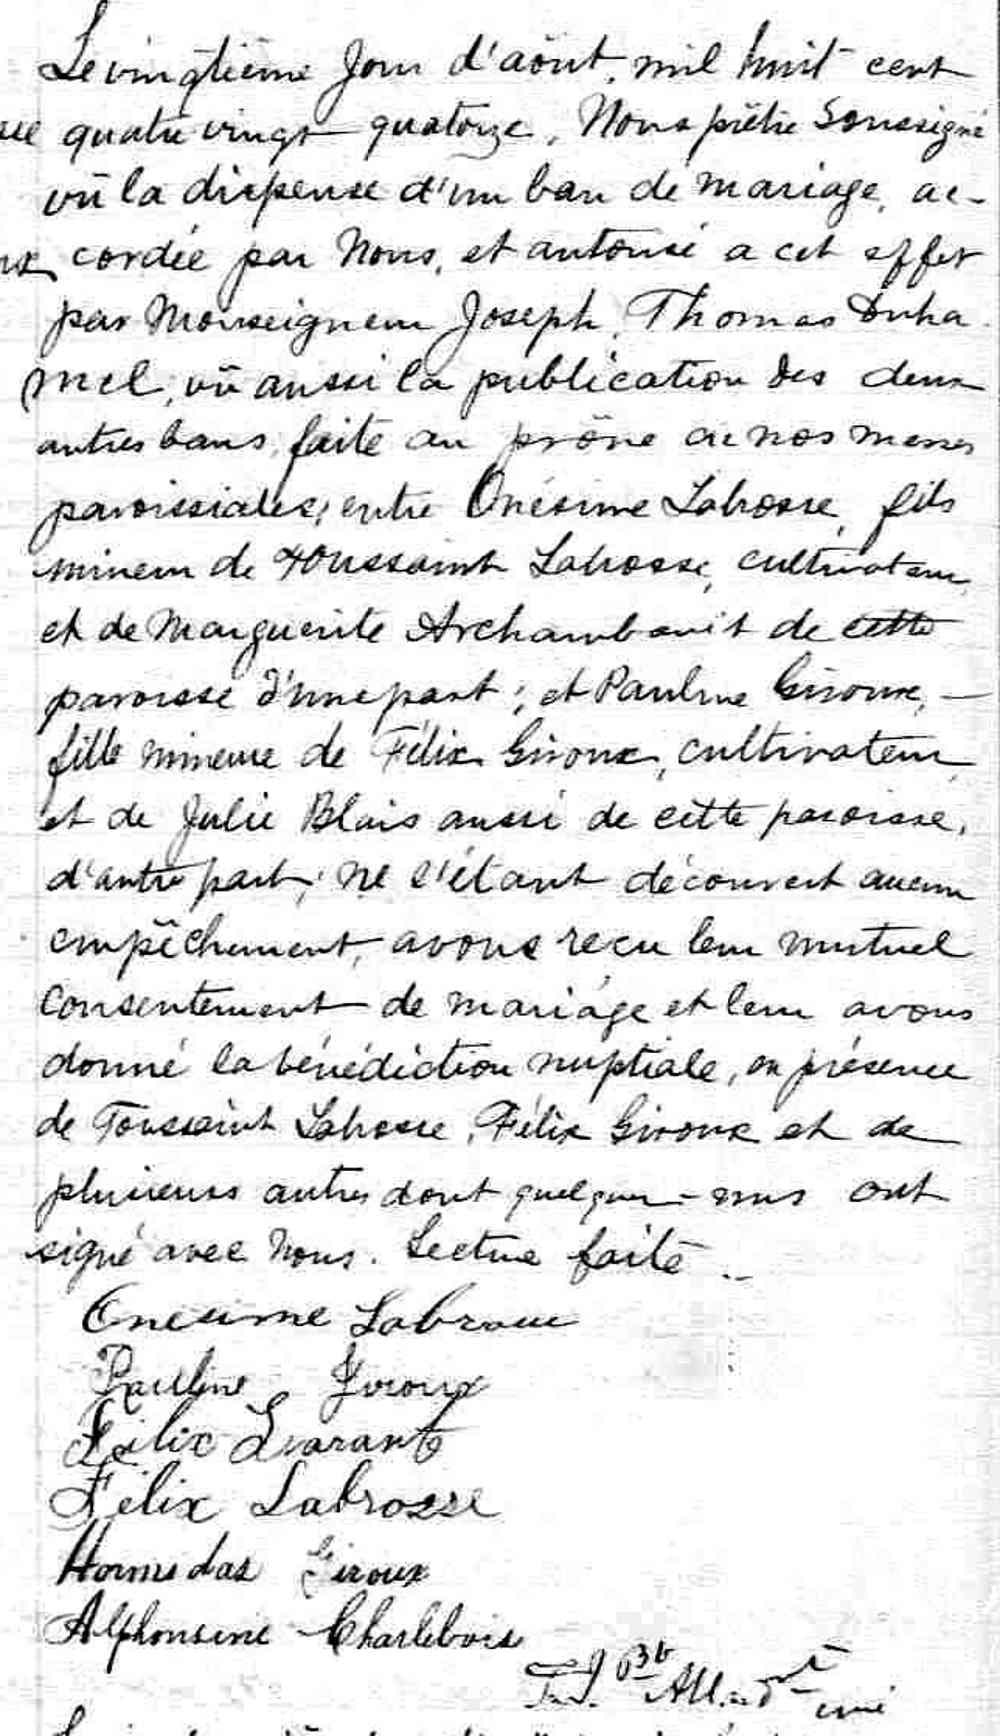 Le vingtième Jour d'août, mil huit cent
quatre vingt quatorze, Nous prêtre Soussigné
vû la dispense d'un ban de mariage, ac-
cordée par Nous, et autorisé a cet effet
par Monseigneur Joseph, Thomas Duha
mel, vû aussi la publication des deux
autres bans, faite au prône de nos messes
paroissiales, entre Onésime Labrosse, fils
mineur de Toussaint Labrosse, cultivateur,
et de Marguerite Archambault de cette
paroisse d'une part; et Pauline Giroux, -
fille mineure de Félix Giroux, cultivateur,
et de Julie Blais aussi de cette paroisse,
d'autre part; Ne s'étant découvert aucun
empêchement, avons reçu leur mutuel
consentement de mariage et leur avons
donné la bénédiction nuptiale, en présence
de Toussaint Labrosse, Félix Giroux et de
plusieurs autres dont quelques-uns ont
signé avec Nous. Lecture faite
Onesime Labrosse
Pauline Giroux
Félix
Félix Labrosse
Hormidas Giroux
Alphonsine Charlebois
curé